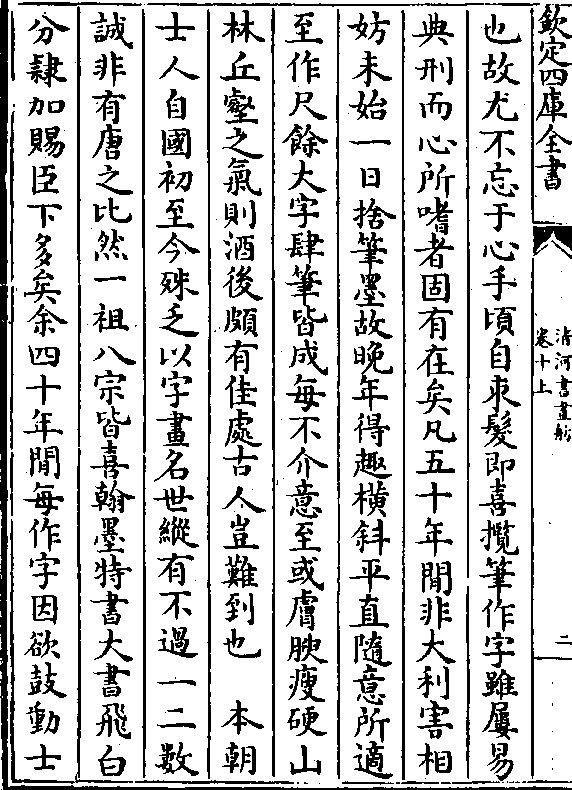 欽定四庫全書
清河書畫舫
卷十上
二
也故尤不忘于心手頃自束髮即喜攬筆作字雖屢易
典刑而心所嗜者固有在矣凡五十年間非大利害相
妨未始一日捨筆墨故晚年得趣橫斜平直隨意所適
至作尺餘大字肆筆皆成每不介意至或膚腴瘦硬山
林丘壑之氣則酒後頗有佳處古人豈難到也　本朝
士人自國初至今殊乏以字畫名世縱有不過一二數
誠非有唐之比然一祖八宗皆喜翰墨特書大書飛白
分隸加賜臣下多矣余四十年間每作字因欲鼓動士